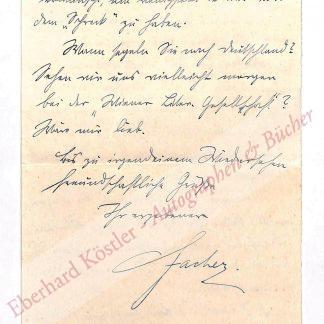 dem „Schreck“ zu haben.
Wann segeln Sie nach Deutschland?
Sehen wir uns vielleicht morgen
bei der „Wiener Liter. Gesellschaft“?
Wär mir lieb.
Bis zu irgendeinem Wiedersehen
freundschaftliche Grüße
Ihr ergebener
Eberhard Köstler - Autographen & Bücher